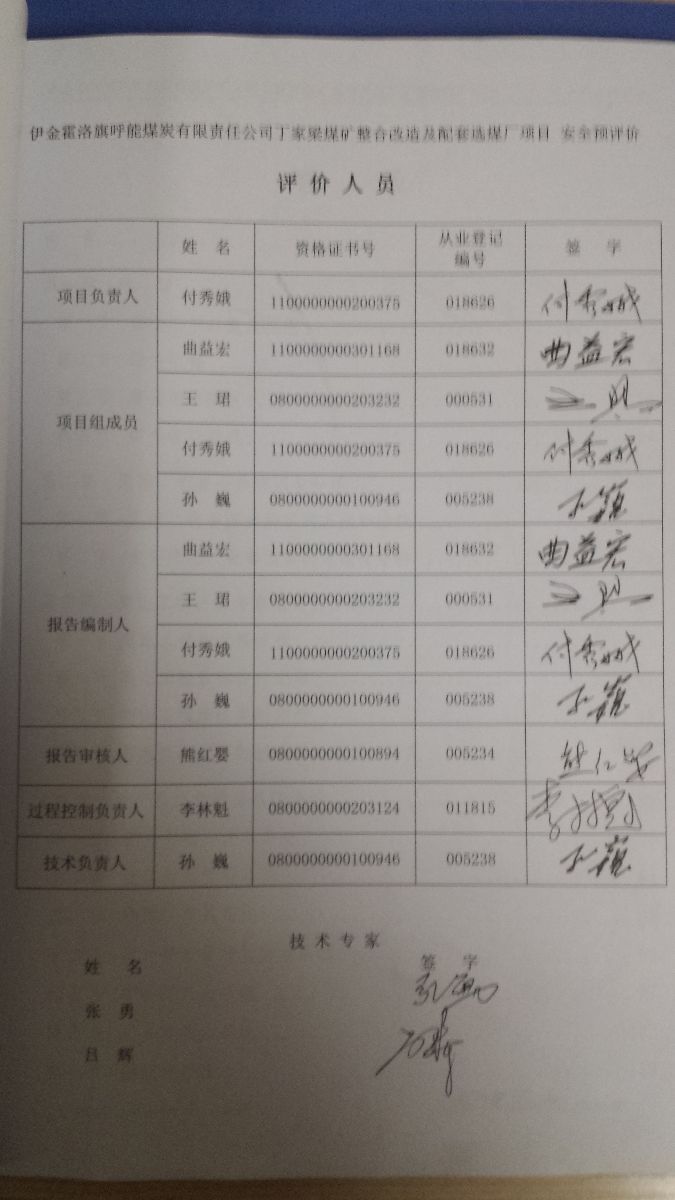 伊金霍洛旗呼能煤炭有限责任公司丁家梁煤矿整合改造及配套选煤厂项目 安全预评价
评 价 人 员
姓 名 资格证书号 从业登记编号 签 字
项目负责人 付秀娥 1100000000200375 018626 付秀娥
项目组成员 曲益宏 1100000000301168 018632 曲益宏
王 珺 0800000000203232 000531 王珺
付秀娥 1100000000200375 018626 付秀娥
孙 巍 0800000000100946 005238 孙巍
报告编制人 曲益宏 1100000000301168 018632 曲益宏
王 珺 0800000000203232 000531 王珺
付秀娥 1100000000200375 018626 付秀娥
孙 巍 0800000000100946 005238 孙巍
报告审核人 熊红婴 0800000000100894 005234
过程控制负责人 李林魁 0800000000203124 011815
技术负责人 孙 巍 0800000000100946 005238 孙巍
技 术 专 家
姓 名 签 字
张 勇
吕 辉